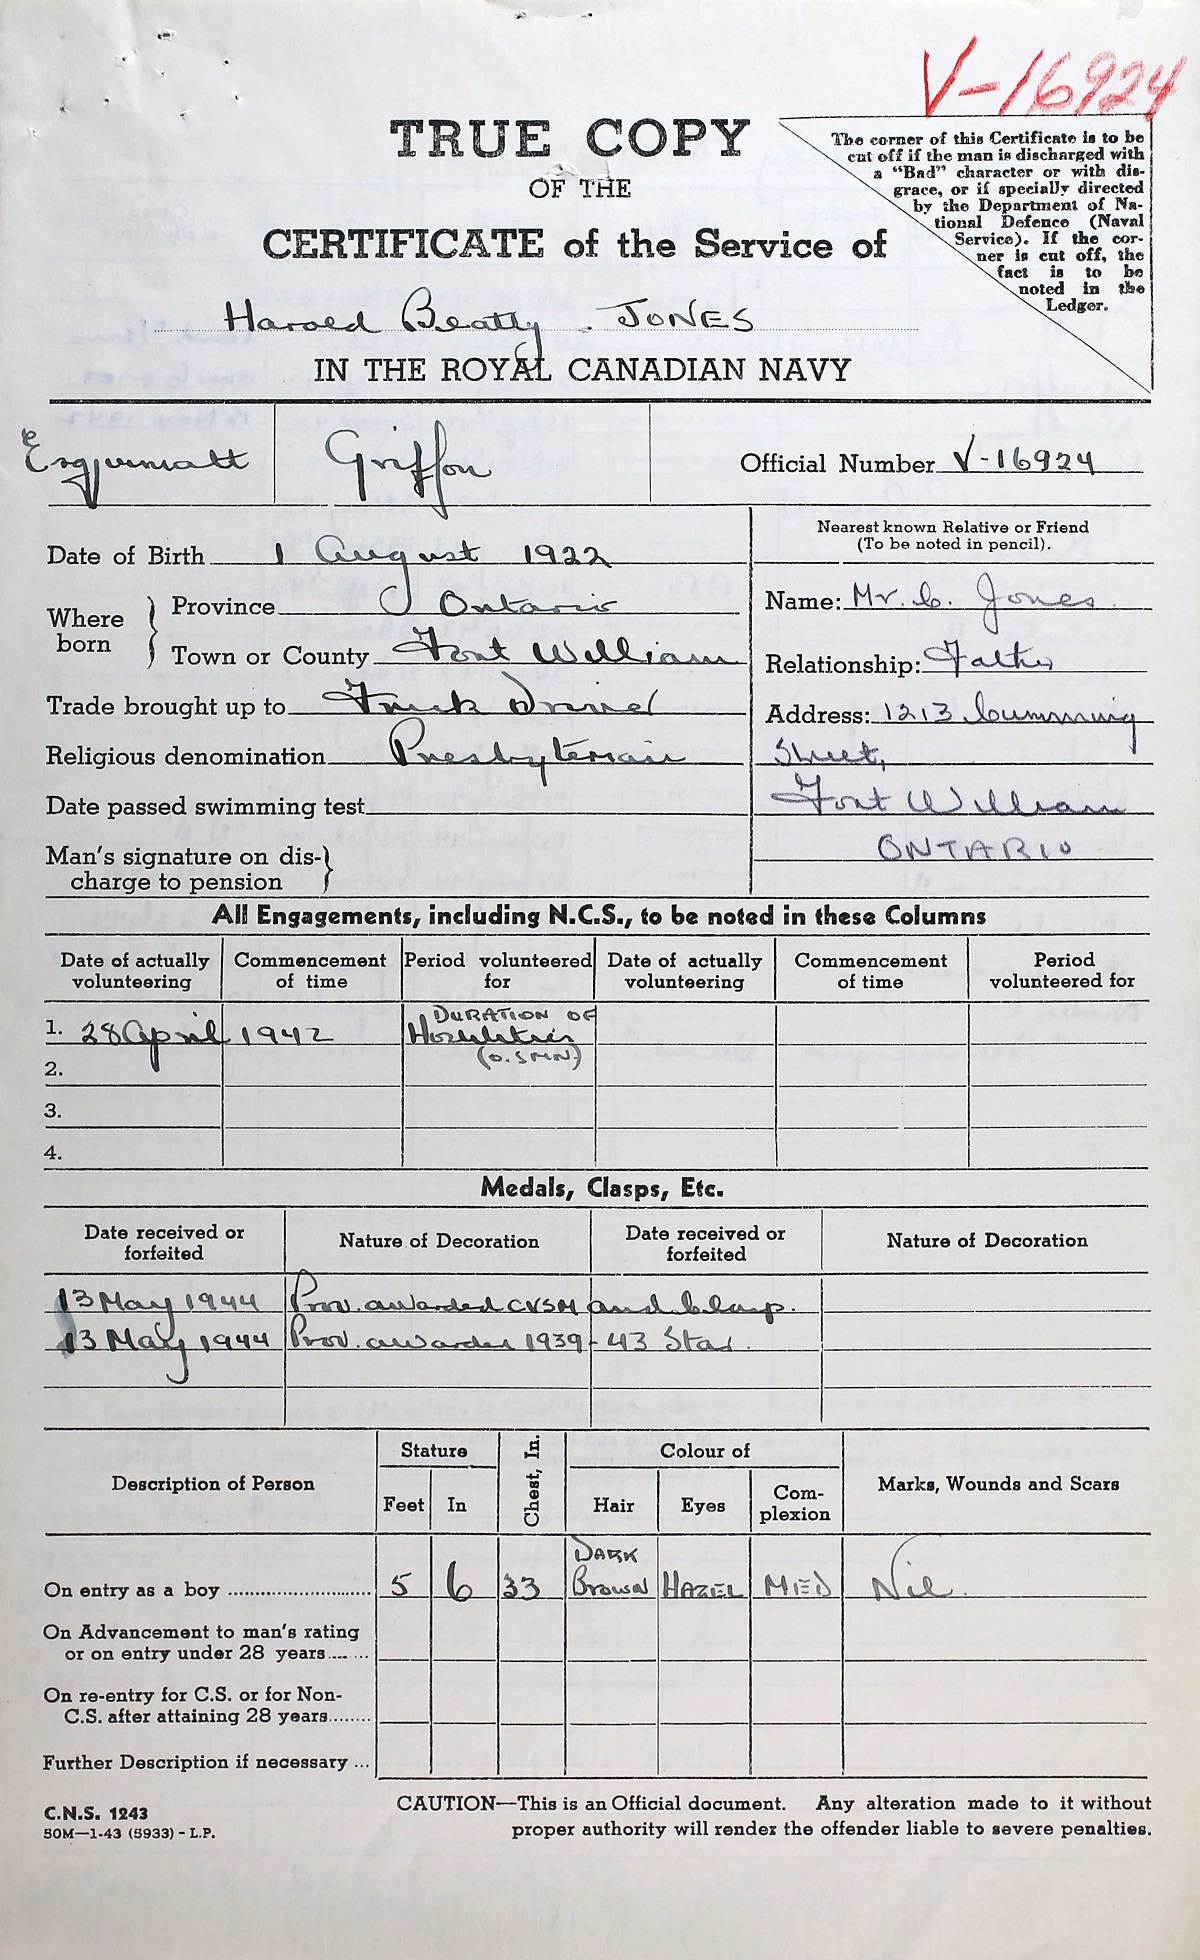 V-16924
TRUE COPY
OF THE
CERTIFICATE of the Service of
Harold Beatty - JONES
IN THE ROYAL CANADIAN NAVY
The corner of this Certificate is to be
cut off if the man is discharged with
a "Bad" character or with dis-
grace, or if specially directed
by the Department of Na-
tional Defence (Naval
Service). If the cor-
ner is cut off, the
fact is to be
noted in the
Ledger.
Esquimalt Griffon Official Number V-16924
Date of Birth 1 August 1922
Where born
Province Ontario
Town or County Fort William
Trade brought up to Truck Driver
Religious denomination Presbyterian
Date passed swimming test
Man's signature on dis-
charge to pension
Nearest known Relative or Friend
(To be noted in pencil).
Name: Mr. C. Jones
Relationship: Father
Address: 1213 Cumming
Street,
Fort William
ONTARIO
All Engagements, including N.C.S., to be noted in these Columns
Date of actually volunteering Commencement of time Period volunteered for Date of actually volunteering Commencement of time Period volunteered for
1. 28 April 1942 DURATION OF
Hostilities
(O.SMN)
2.
3.
4.
Medals, Clasps, Etc.
Date received or forfeited Nature of Decoration Date received or forfeited Nature of Decoration
13 May 1944 Prov. awarded CVSM and Clasp.
13 May 1944 Prov. awarded 1939-43 Star.
Description of Person Stature Feet In Chest, In. Colour of Hair Eyes Com-plexion Marks, Wounds and Scars
On entry as a boy 5 6 33 DARK Brown HAZEL MED Nil.
On Advancement to man's rating
or on entry under 28 years
On re-entry for C.S. or for Non-
C.S. after attaining 28 years
Further Description if necessary
C.N.S. 1243
50M—1-43 (5933) - L.P.
CAUTION—This is an Official document. Any alteration made to it without
proper authority will render the offender liable to severe penalties.